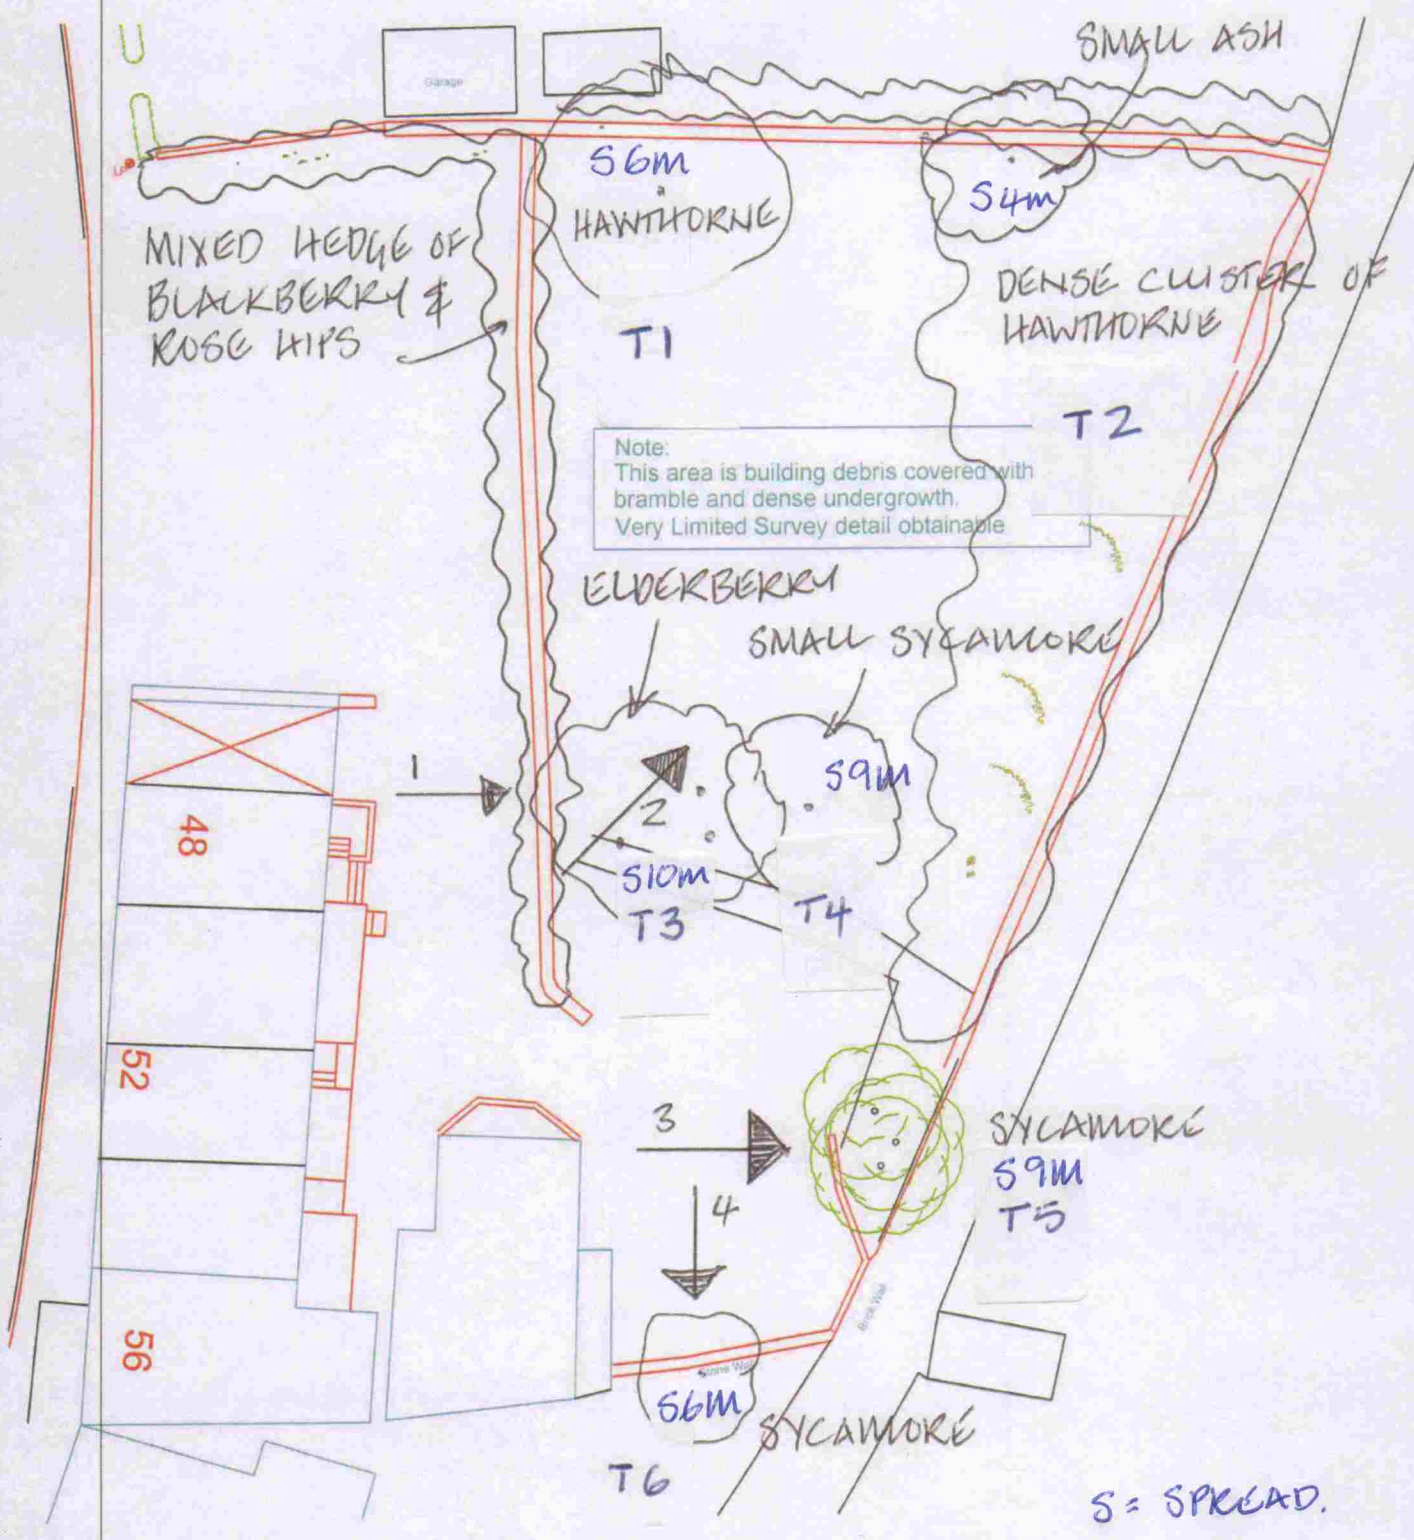 SMALL ASH
Garage
S6M
HAWTHORNE
S4m
MIXED HEDGE OF
BLACKBERRY &
ROSE HIPS
DENSE CLUSTER OF
HAWTHORNE
T1
T2
Note:
This area is building debris covered with
bramble and dense undergrowth.
Very Limited Survey detail obtainable
ELDERBERRY
SMALL SYCAMORE
1
2
S9M
48
S10m
T3
T4
52
3
SYCAMORE
S9M
T5
4
Brick Wall
56
Stone Wall
S6M
SYCAMORE
T6
S = SPREAD.